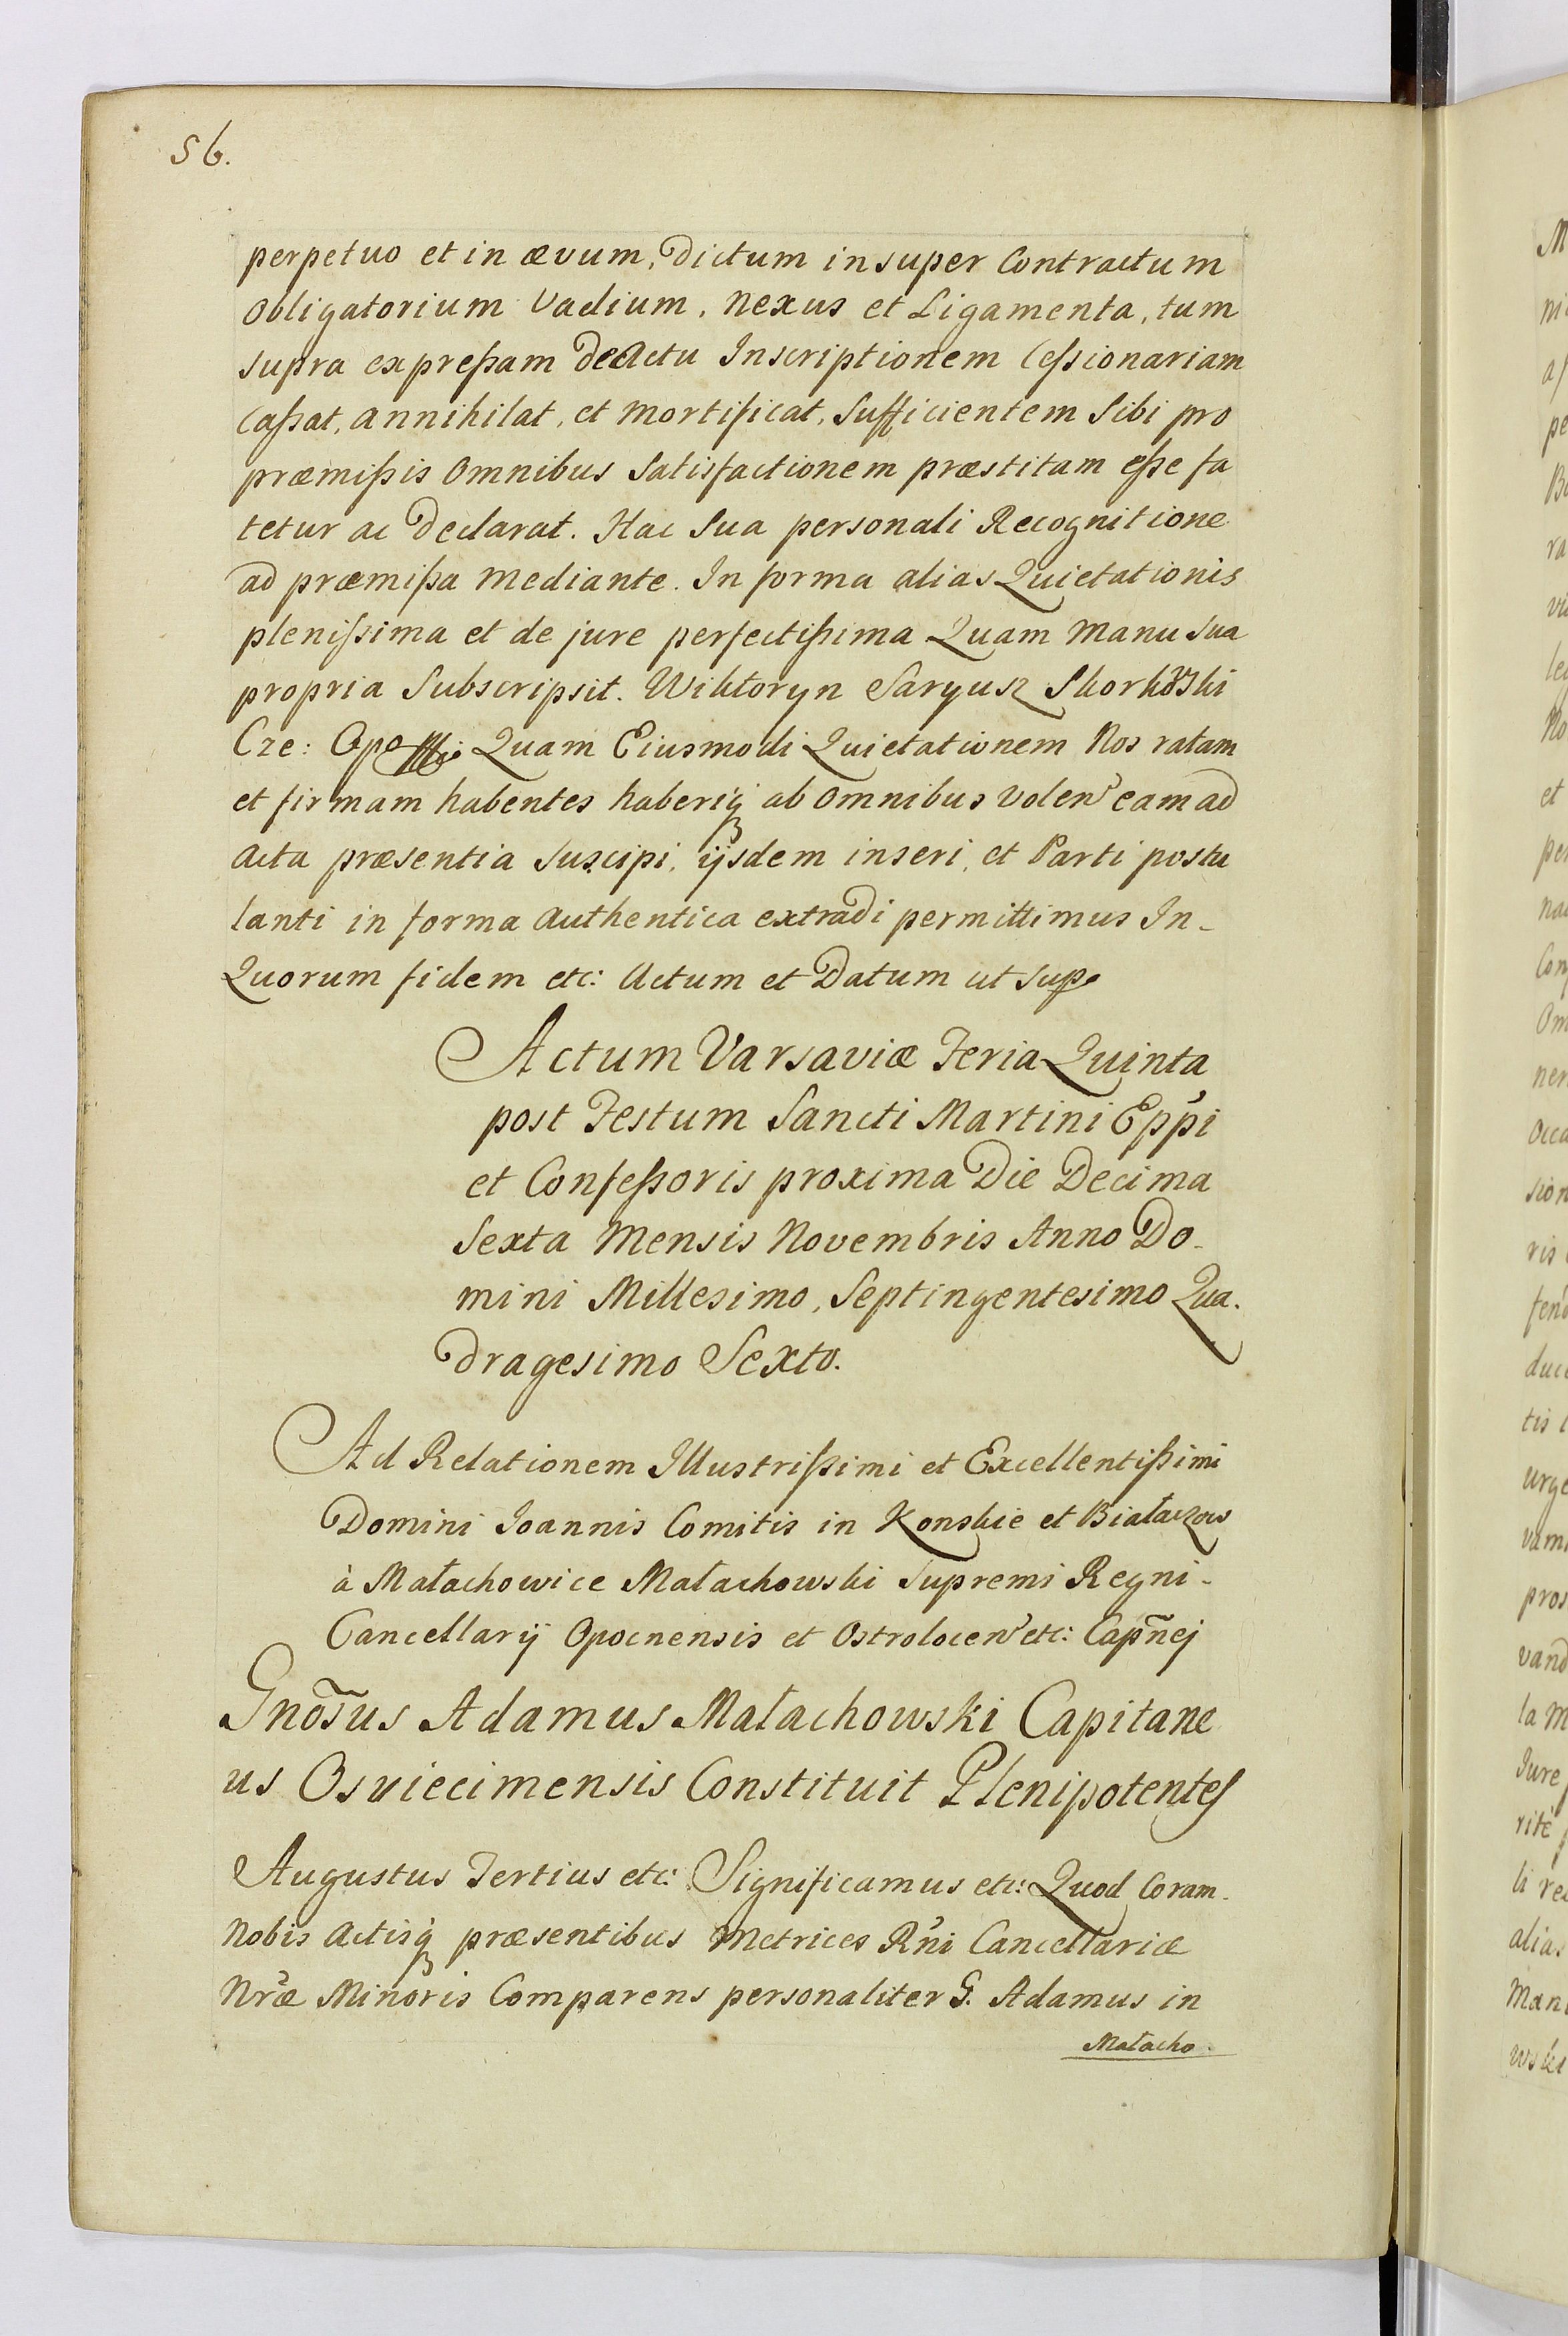 56.
perpetuo et in ævum, Dictum insuper Contractum
Obligatorium Vadium, Nexus et Ligamenta, tum
supra expreßam de Actu Inscriptionem Ceßionariam
Caßat, annihilat, et mortificat, Sufficientem Sibi pro
præmißis Omnibus Satisfactionem præstitam eße fa
tetur ac Declarat. Hac Sua personali Recognitione
ad præmißa mediante. In forma alias Quietationis
plenißima et de jure perfectißima Quam Manu Sua
propria Subscripsit. Wiktoryn Saryusz
Cze: Quam Eiusmodi Quietationem Nos ratam
et firmam habentes haberiq́ ab omnibus volen̾ eam ad
Acta præsentia suscipi, ijsdem inseri, et Parti postu
lanti in forma Authentica extradi permittimus In-
Quorum fidem etc: Actum et Datum ut sup
Actum Varsaviæ Feria Quinta
post Festum Sancti Martini Epp̾i
et Confeßoris proxima Die Decima
Sexta Mensis Novembris Anno Do-
mini Millesimo, Septingentesimo Qua.
dragesimo Sexto.
Ad Relationem Illustrißimi et Excellentißimi
Domini Joannis Comitis in Konskie et Białaczow
à Małachowice Małachowski Supremi Regni-
Cancellarÿ Opocnensis et Ostrolocen̾ etc: Cap̃nej
Gnõsus Adamus Małachowski Capitane
us Osviecimensis Constituit Plenipotentes
Augustus Tertius etc: Significamus etc: Quod Coram.
Nobis Actisq́ præsentibus Metrices R̾ni Cancellariæ
Nr̃æ Minoris Comparens personaliter G. Adamus in
Małacho.